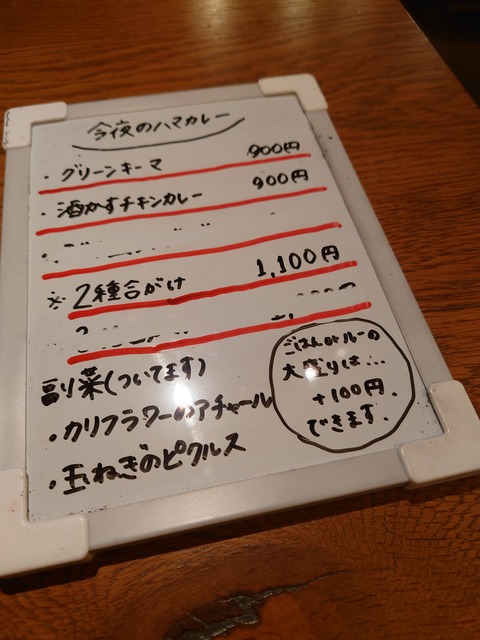 今夜のハマカレー
・グリーンキーマ 900円
・酒かすチキンカレー 900円
※2種合がけ 1,100円
副菜(ついてます)
・カリフラワーのアチャール
・玉ねぎのピクルス
ごはんorルーの
大盛りは…
+100円
できます.